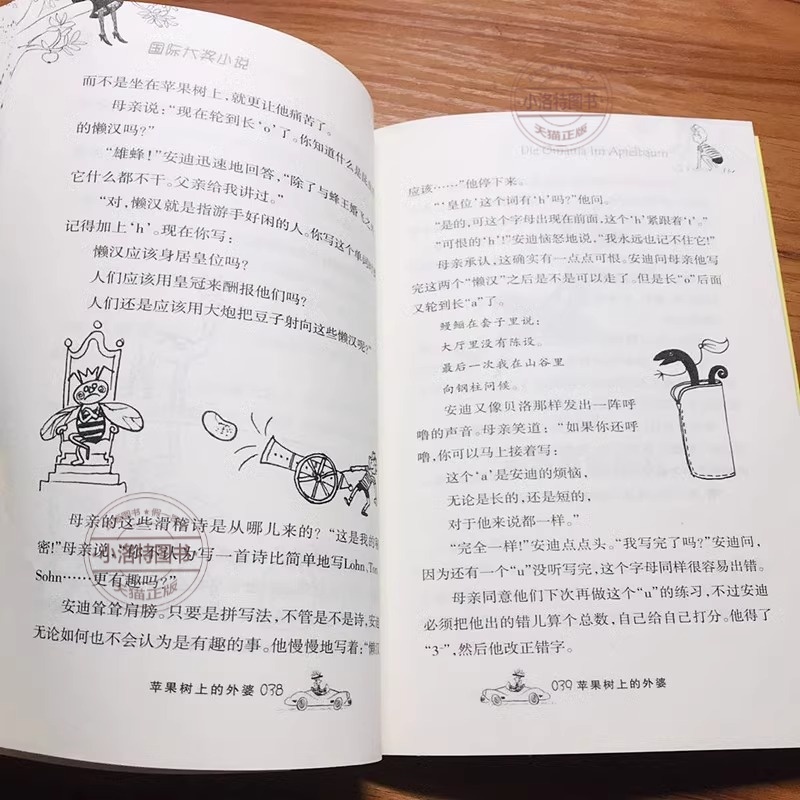 国际大奖小说
而不是坐在苹果树上，就更让他痛苦了。
母亲说：“现在轮到长‘o’了。你知道什么是
的懒汉吗？”
“雄蜂！”安迪迅速地回答，“除了与蜂王婚飞之
它什么都不干。父亲给我讲过。”
“对，懒汉就是指游手好闲的人。你写这个单词
记得加上‘h’。现在你写：
懒汉应该身居皇位吗？
人们应该用皇冠来酬报他们吗？
人们还是应该用大炮把豆子射向这些懒汉呢？”
母亲的这些滑稽诗是从哪儿来的？“这是我的
密！”母亲说，“你不认为写一首诗比简单地写Lohn、Ton
Sohn……更有趣吗？”
安迪耸耸肩膀。只要是拼写法，不管是不是诗，安
无论如何也不会认为是有趣的事。他慢慢地写着：“懒汉
苹果树上的外婆 038
Die Omama im Apfelbaum
应该……”他停下来。
“‘皇位’这个词有‘h’吗？”他问。
“是的，可这个字母出现在前面，这个‘h’紧跟着‘t’。”
“可恨的‘h’！”安迪恼怒地说，“我永远也记不住它！”
母亲承认，这确实有一点点可恨。安迪问母亲他写
完这两个“懒汉”之后是不是可以走了。但是长“o”后面
又轮到长“a”了。
鳗鲡在套子里说：
大厅里没有陈设。
最后一次我在山谷里
向钢柱问候。
安迪又像贝洛那样发出一阵呼
噜的声音。母亲笑道：“如果你还呼
噜，你可以马上接着写：
这个‘a’是安迪的烦恼，
无论是长的，还是短的，
对于他来说都一样。”
“完全一样！”安迪点点头。“我写完了吗？”安迪问，
因为还有一个“u”没听写完，这个字母同样很容易出错。
母亲同意他们下次再做这个“u”的练习，不过安迪
必须把他出的错儿算个总数，自己给自己打分。他得了
“3-”，然后他改正错字。
039 苹果树上的外婆
小洛特图书
天猫正版
小洛特图书
天猫正版